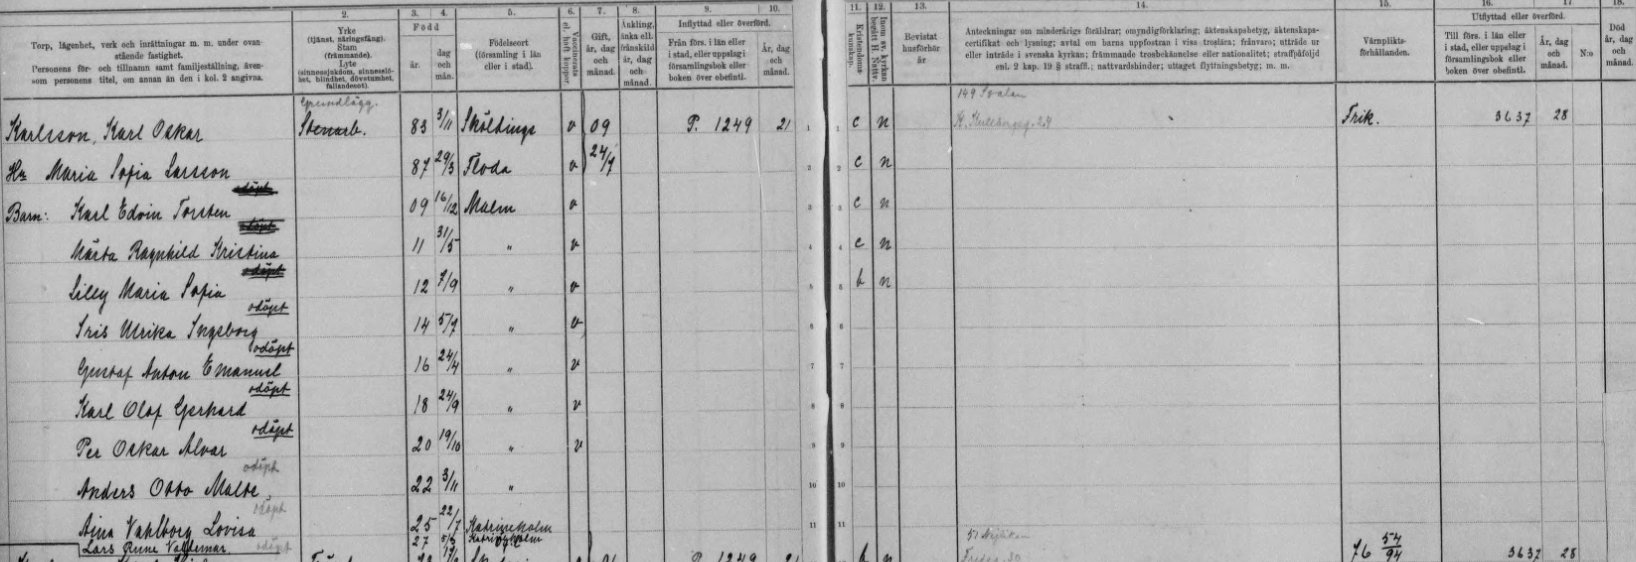 2. 3. 4. 5. 6. 7. 8. 9. 10. 11. 12. 13. 14. 15. 16. 17 18.
Torp, lägenhet, verk och inrättningar m. m. under ovan-
stående fastighet.
Personens för- och tillnamn samt familjeställning, även-
som personens titel, om annan än den i kol. 2 angivna.
Yrke
(tjänst, näringsfång).
Stam
(främmande).
Lyte
(sinnessjukdom, sinnesslö-
het, blindhet, dövstumhet,
fallandesot).
Född
år.
dag
och
mån.
Födelseort
(församling i län
eller i stad).
Vaccinerats
el. haft koppor
Gift,
år, dag
och
månad.
Änkling,
änka ell.
frånskild
år, dag
och
månad.
Inflyttad eller överförd.
Från förs. i län eller
i stad, eller uppslag i
församlingsbok eller
boken över obefintl.
År, dag
och
månad.
Kristendoms-
kunskap.
Inom sv. kyrkan
begått H. Nattv.
Bevistat
husförhör
år
Anteckningar om minderårigs föräldrar; omyndigförklaring; äktenskapsbetyg, äktenskaps-
certifikat och lysning; avtal om barns uppfostran i viss troslära; frånvaro; utträde ur
eller inträde i svenska kyrkan; främmande trosbekännelse eller nationalitet; straffpåföljd
enl. 2 kap. 19 § straffl.; nattvardshinder; uttaget flyttningsbetyg; m. m.
Värnplikts-
förhållanden.
Utflyttad eller överförd.
Till förs. i län eller
i stad, eller uppslag i
församlingsbok eller
boken över obefintl.
År, dag
och
månad.
N:o
Död
år, dag
och
månad.
Grundlägg. 149 Svalan
Karlsson, Karl Oskar Stenarb. 83 3/11 Sköldinge v 09 P. 1249 21 1 1 c n Frik. 3637 28
Hu Maria Sofia Larsson 87 29/3 Floda v 24/7 2 2 c n
odöpt
Barn: Karl Edvin Torsten 09 16/12 Malm v 3 3 c n
odöpt
Märta Ragnhild Kristina 11 31/5 " v 4 4 c n
odöpt
Lilly Maria Sofia 12 7/9 " v 5 5 b n
odöpt
Iris Ulrika Ingeborg 14 5/7 " v 6 6
odöpt
Gustaf Anton Emanuel 16 24/4 " v 7 7
odöpt
Karl Olof Gerhard 18 24/9 " v 8 8
odöpt
Per Oskar Alvar 20 19/10 " v 9 9
odöpt
Anders Otto Malte 22 3/11 " 10 10
odöpt
Aina Valborg Lovisa 25 22/7 Katrineholm 11 11
Lars Rune Valdemar odöpt 27 Katrineholm 51
P. 1249 21 b n 76 54/94 3637 28